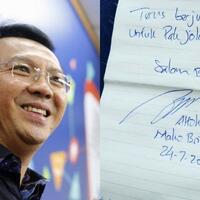 Terus berju
untuk Pak Jok
Salam
Mako Br
24-7-20